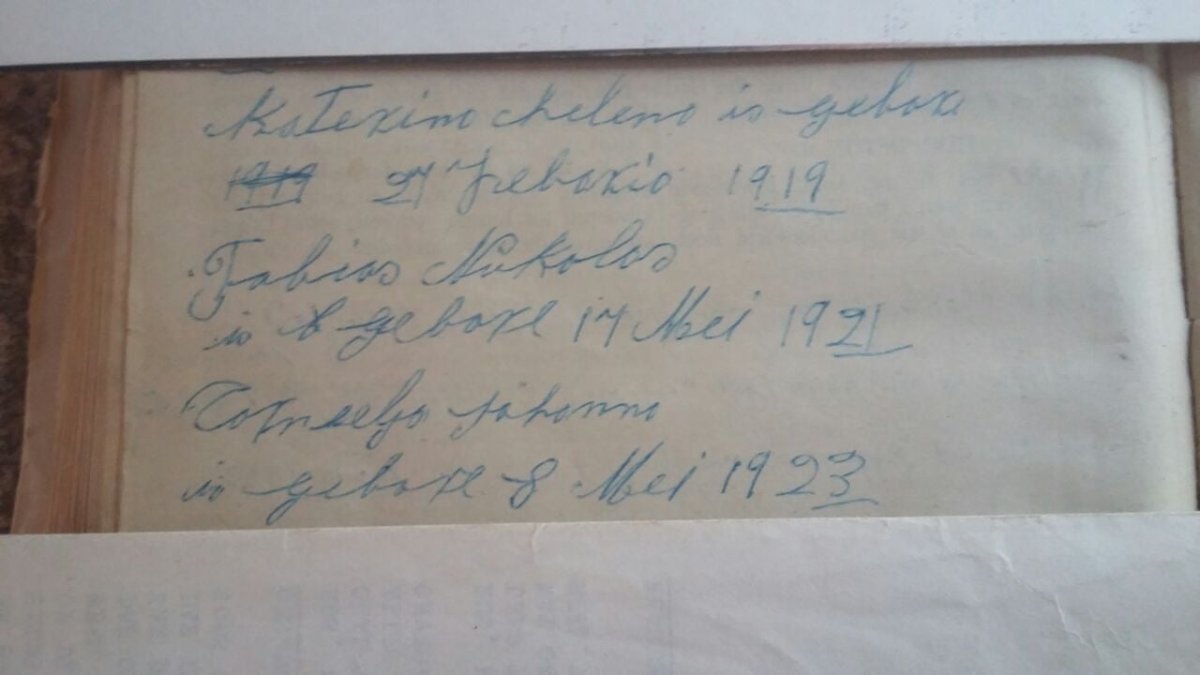 Katerina helena is gebore
1919 27 Febarie 1919
Fabias Nikolas
is gebore 17 Mei 1921
Cornelja johanna
is gebore 8 Mei 1923